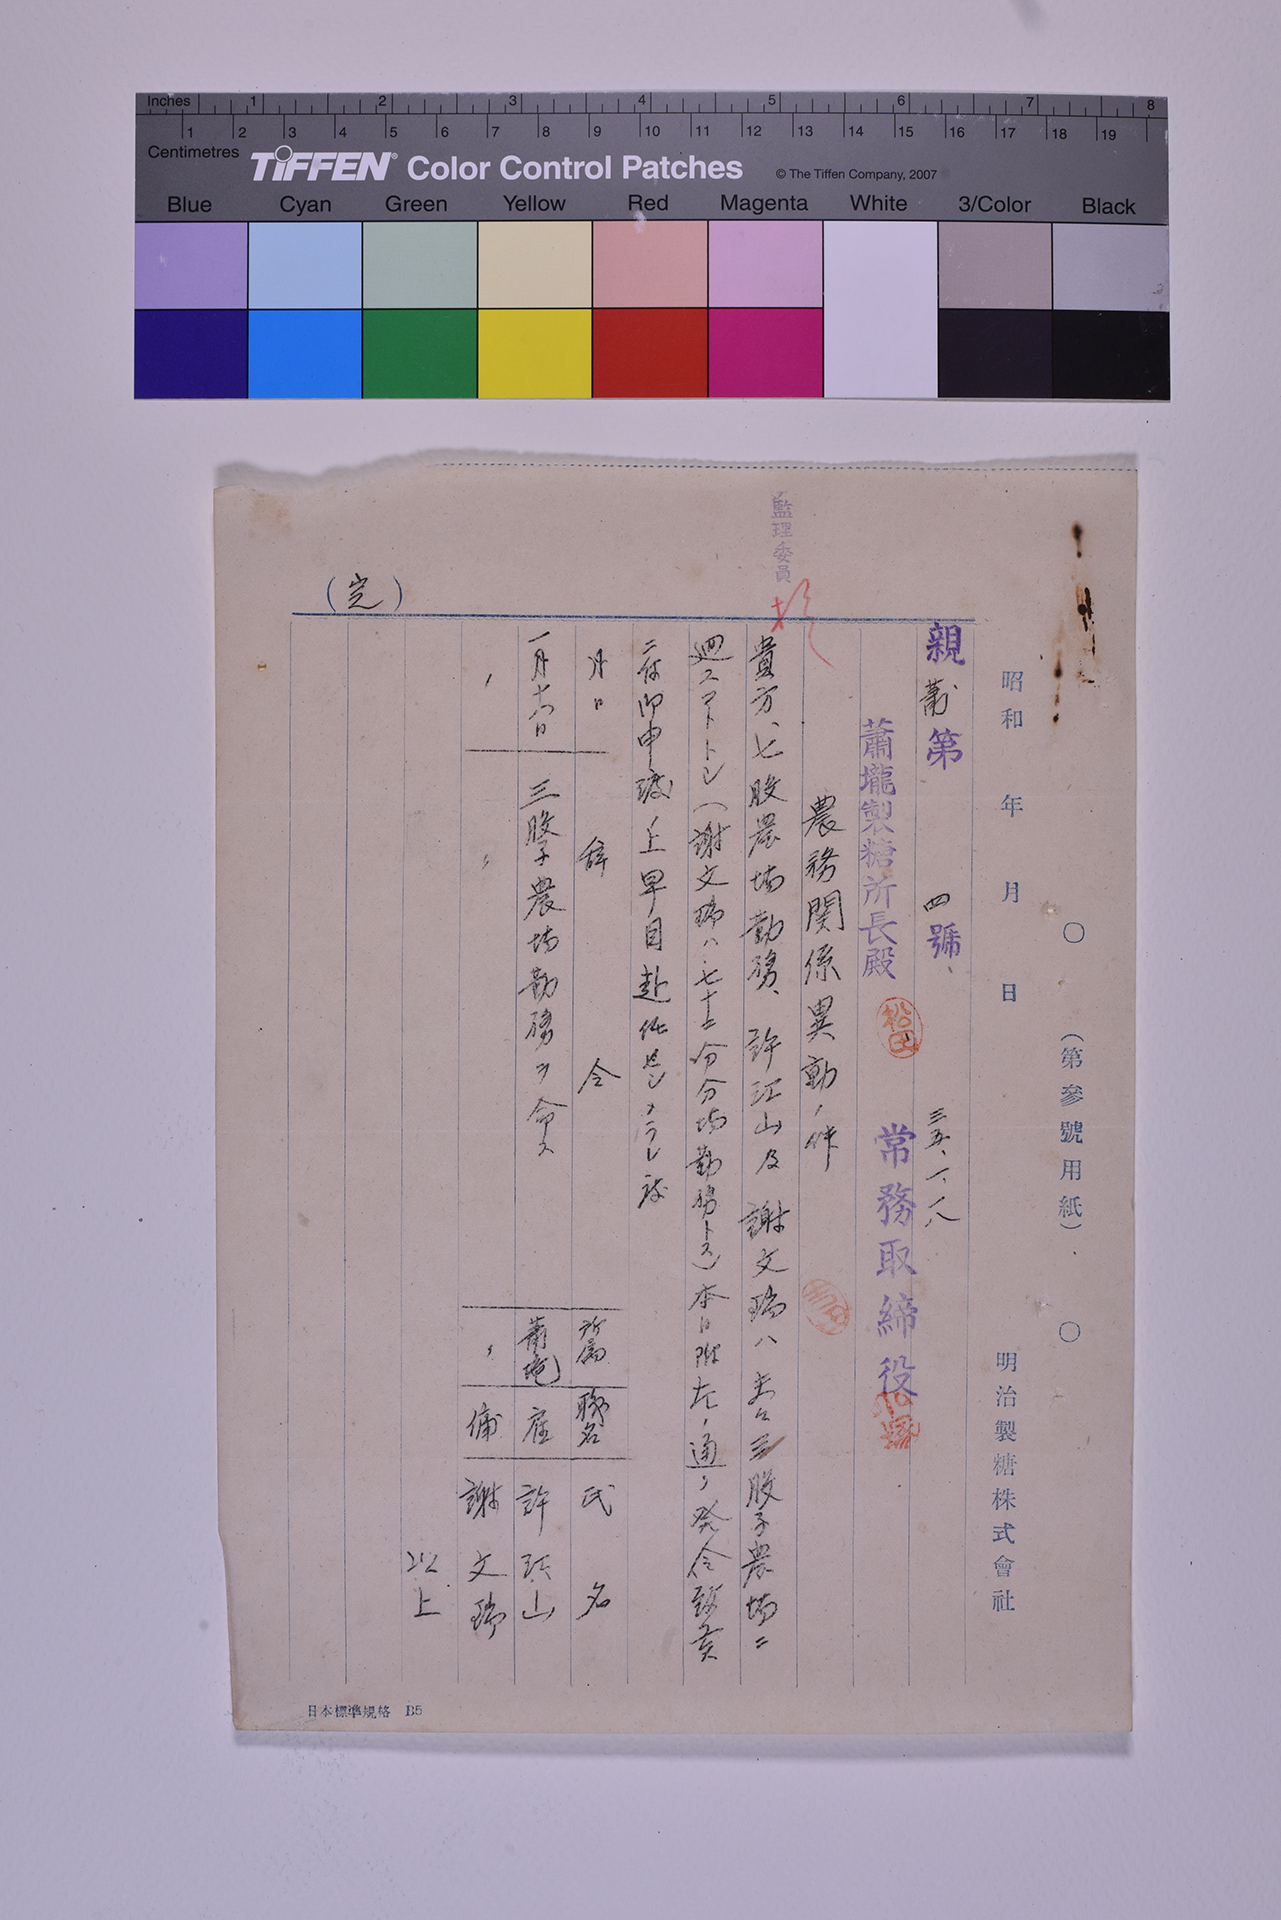 Inches 1 2 3 4 5 6 7 8
1 2 3 4 5 6 7 8 9 10 11 12 13 14 15 16 17 18 19
Centimetres
TIFFEN® Color Control Patches © The Tiffen Company, 2007
Blue Cyan Green Yellow Red Magenta White 3/Color Black
(第參號用紙)
昭和 年 月 日 明治製糖株式會社
親蕭第 四 號 三五、一、一八
蕭壠製糖所長殿 松田 常務取締役
監理委員
農務関係異動ノ件
貴方、七股農場勤務、許江山及 謝文瑞ハ 夫々三股子農場ニ
廻スコトトシ(謝文瑞ハ七十二份分場勤務トス)本日附左ノ通リ発令致候
ニ付御申渡ノ上早目赴任 度
月日 辞 令 所属 職名 氏 名
一月十八日 三股子農場勤務ヲ命ス 蕭壠 雇 許江山
〃 〃 〃 傭 謝文瑞
以上
(完)
日本標準規格 B5